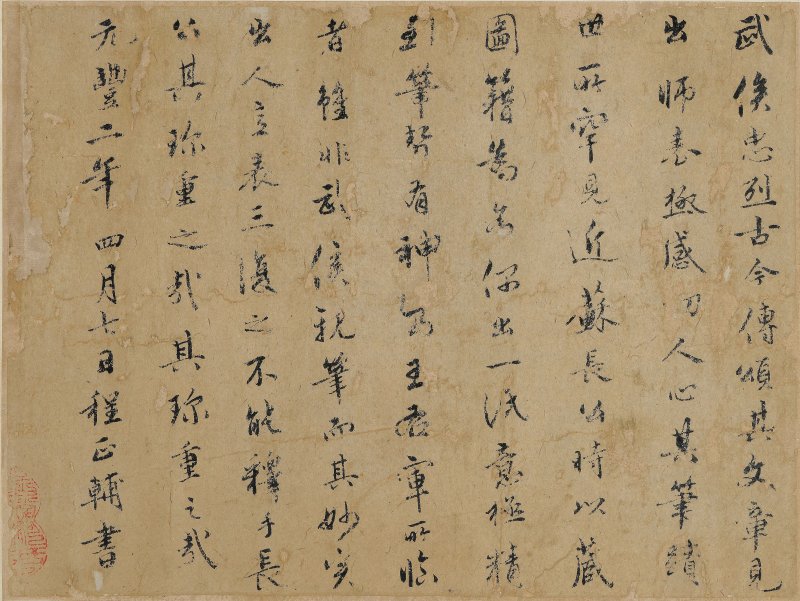 武侯忠烈古今傳頌其文章見
出師表極感切人心其筆蹟
世所罕見近蘇長公時以藏
圖籍爲余仍出一泯意極精
到筆勢有神乃王右軍所臨
者雖非武侯親筆而其妙突
出人意表三復之不能釋手長
公其珍重之哉其珍重之哉
元豐二年四月七日程正輔書